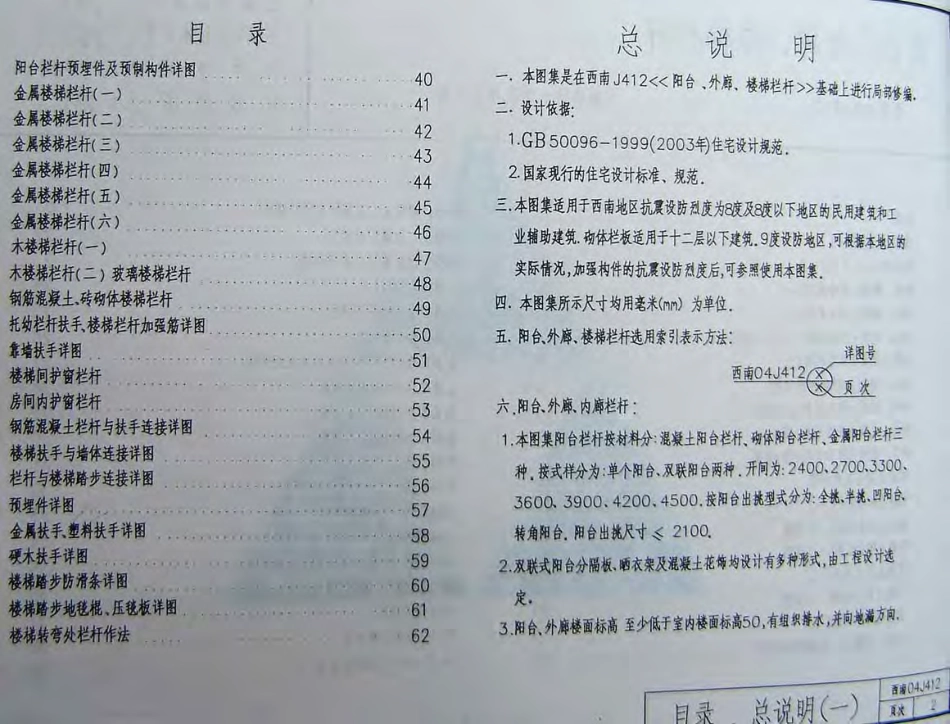 目 录
阳台栏杆预埋件及预制构件详图 40
金属楼梯栏杆(一) 41
金属楼梯栏杆(二) 42
金属楼梯栏杆(三) 43
金属楼梯栏杆(四) 44
金属楼梯栏杆(五) 45
金属楼梯栏杆(六) 46
木楼梯栏杆(一) 47
木楼梯栏杆(二) 玻璃楼梯栏杆 48
钢筋混凝土、砖砌体楼梯栏杆 49
托幼栏杆扶手、楼梯栏杆加强筋详图 50
靠墙扶手详图 51
楼梯间护窗栏杆 52
房间内护窗栏杆 53
钢筋混凝土栏杆与扶手连接详图 54
楼梯扶手与墙体连接详图 55
栏杆与楼梯踏步连接详图 56
预埋件详图 57
金属扶手、塑料扶手详图 58
硬木扶手详图 59
楼梯踏步防滑条详图 60
楼梯踏步地毯棍、压毯板详图 61
楼梯转弯处栏杆作法 62
总 说 明
一. 本图集是在西南J412<<阳台、外廊、楼梯栏杆>>基础上进行局部修编.
二. 设计依据:
1.GB50096-1999(2003年)住宅设计规范.
2.国家现行的住宅设计标准、规范.
三.本图集适用于西南地区抗震设防烈度为8度及8度以下地区的民用建筑和工
业辅助建筑.砌体栏板适用于十二层以下建筑.9度设防地区,可根据本地区的
实际情况,加强构件的抗震设防烈度后,可参照使用本图集.
四. 本图集所示尺寸均用毫米(mm) 为单位.
五. 阳台、外廊、楼梯栏杆选用索引表示方法:
详图号
西南04J412
页 次
六.阳台、外廊、内廊栏杆:
1.本图集阳台栏杆按材料分:混凝土阳台栏杆、砌体阳台栏杆、金属阳台栏杆三
种.按式样分为:单个阳台、双联阳台两种.开间为:2400、2700、3300、
3600、3900、4200、4500.按阳台出挑型式分为:全挑、半挑、凹阳台、
转角阳台. 阳台出挑尺寸≤ 2100.
2.双联式阳台分隔板、晒衣架及混凝土花饰均设计有多种形式,由工程设计选
定.
3.阳台、外廊楼面标高 至少低于室内楼面标高50,有组织排水,并向地漏方向.
目录 总说明(一)
西南04J412
页次 2